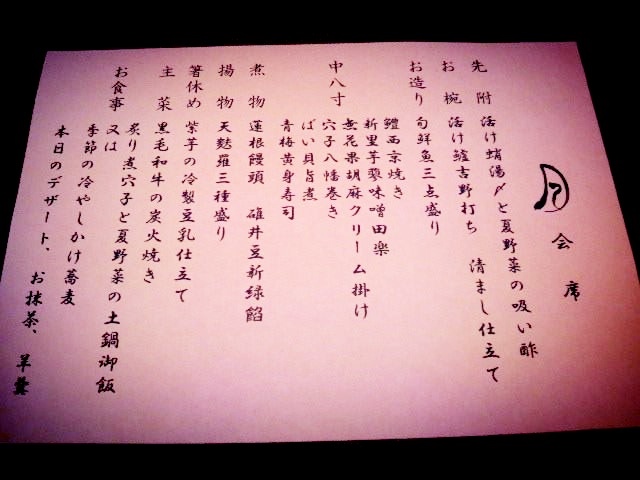 月 会席
先附 活け蛸湯〆と夏野菜の吸い酢
お椀 活け鱸吉野打ち 清まし仕立て
お造り 旬鮮魚三点盛り
中八寸 鱧西京焼き
新里芋蓼味噌田楽
無花果胡麻クリーム掛け
穴子八幡巻き
ばい貝旨煮
青梅黄身寿司
煮物 蓮根饅頭 碓井豆新緑餡
揚物 天麩羅三種盛り
箸休め 紫芋の冷製豆乳仕立て
主菜 黒毛和牛の炭火焼き
お食事 炙り煮穴子と夏野菜の土鍋御飯
又は
季節の冷やしかけ蕎麦
本日のデザート、お抹茶、羊羹